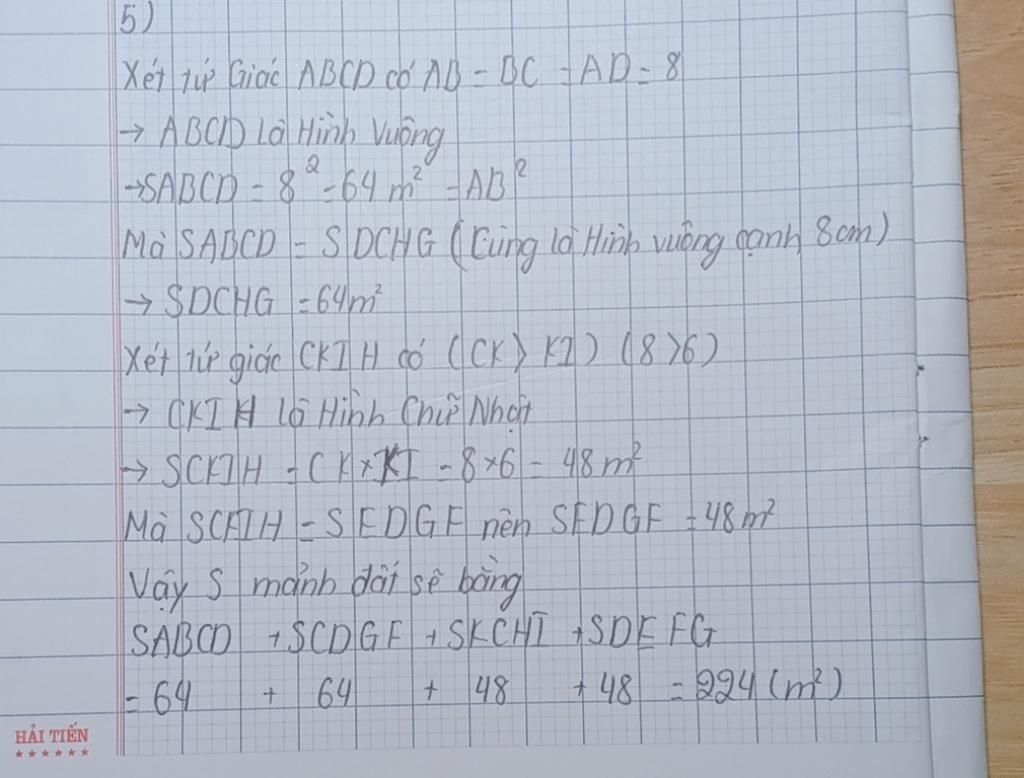 5)
Xét tứ Giác ABCD có AB = BC = AD = 8
→ ABCD Là Hình Vuông
→ SABCD = 8² = 64 m² = AB²
Mà SABCD = SDCHG (Cùng là Hình vuông cạnh 8cm)
→ SDCHG = 64m²
Xét tứ giác CKIH có (CK > KI) (8>6)
→ CKIH Là Hình Chữ Nhật
→ SCKIH = CK × KI = 8×6 = 48 m²
Mà SCKIH = SEDGF nên SEDGF = 48m²
Vậy S mảnh đất sẽ bằng
SABCD + SCDGF + SKCHI + SDEFG
= 64 + 64 + 48 + 48 = 224 (m²)
HẢI TIẾN